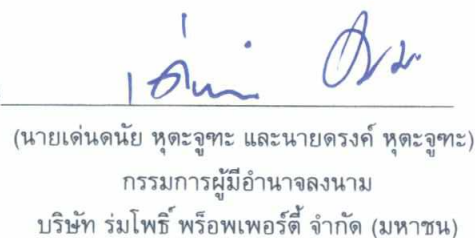 (นายเด่นดนัย หุตะจูฑะ และนายดรงค์ หุตะจูฑะ)
กรรมการผู้มีอำนาจลงนาม
บริษัท ร่มโพธิ์ พร็อพเพอร์ตี้ จำกัด (มหาชน)